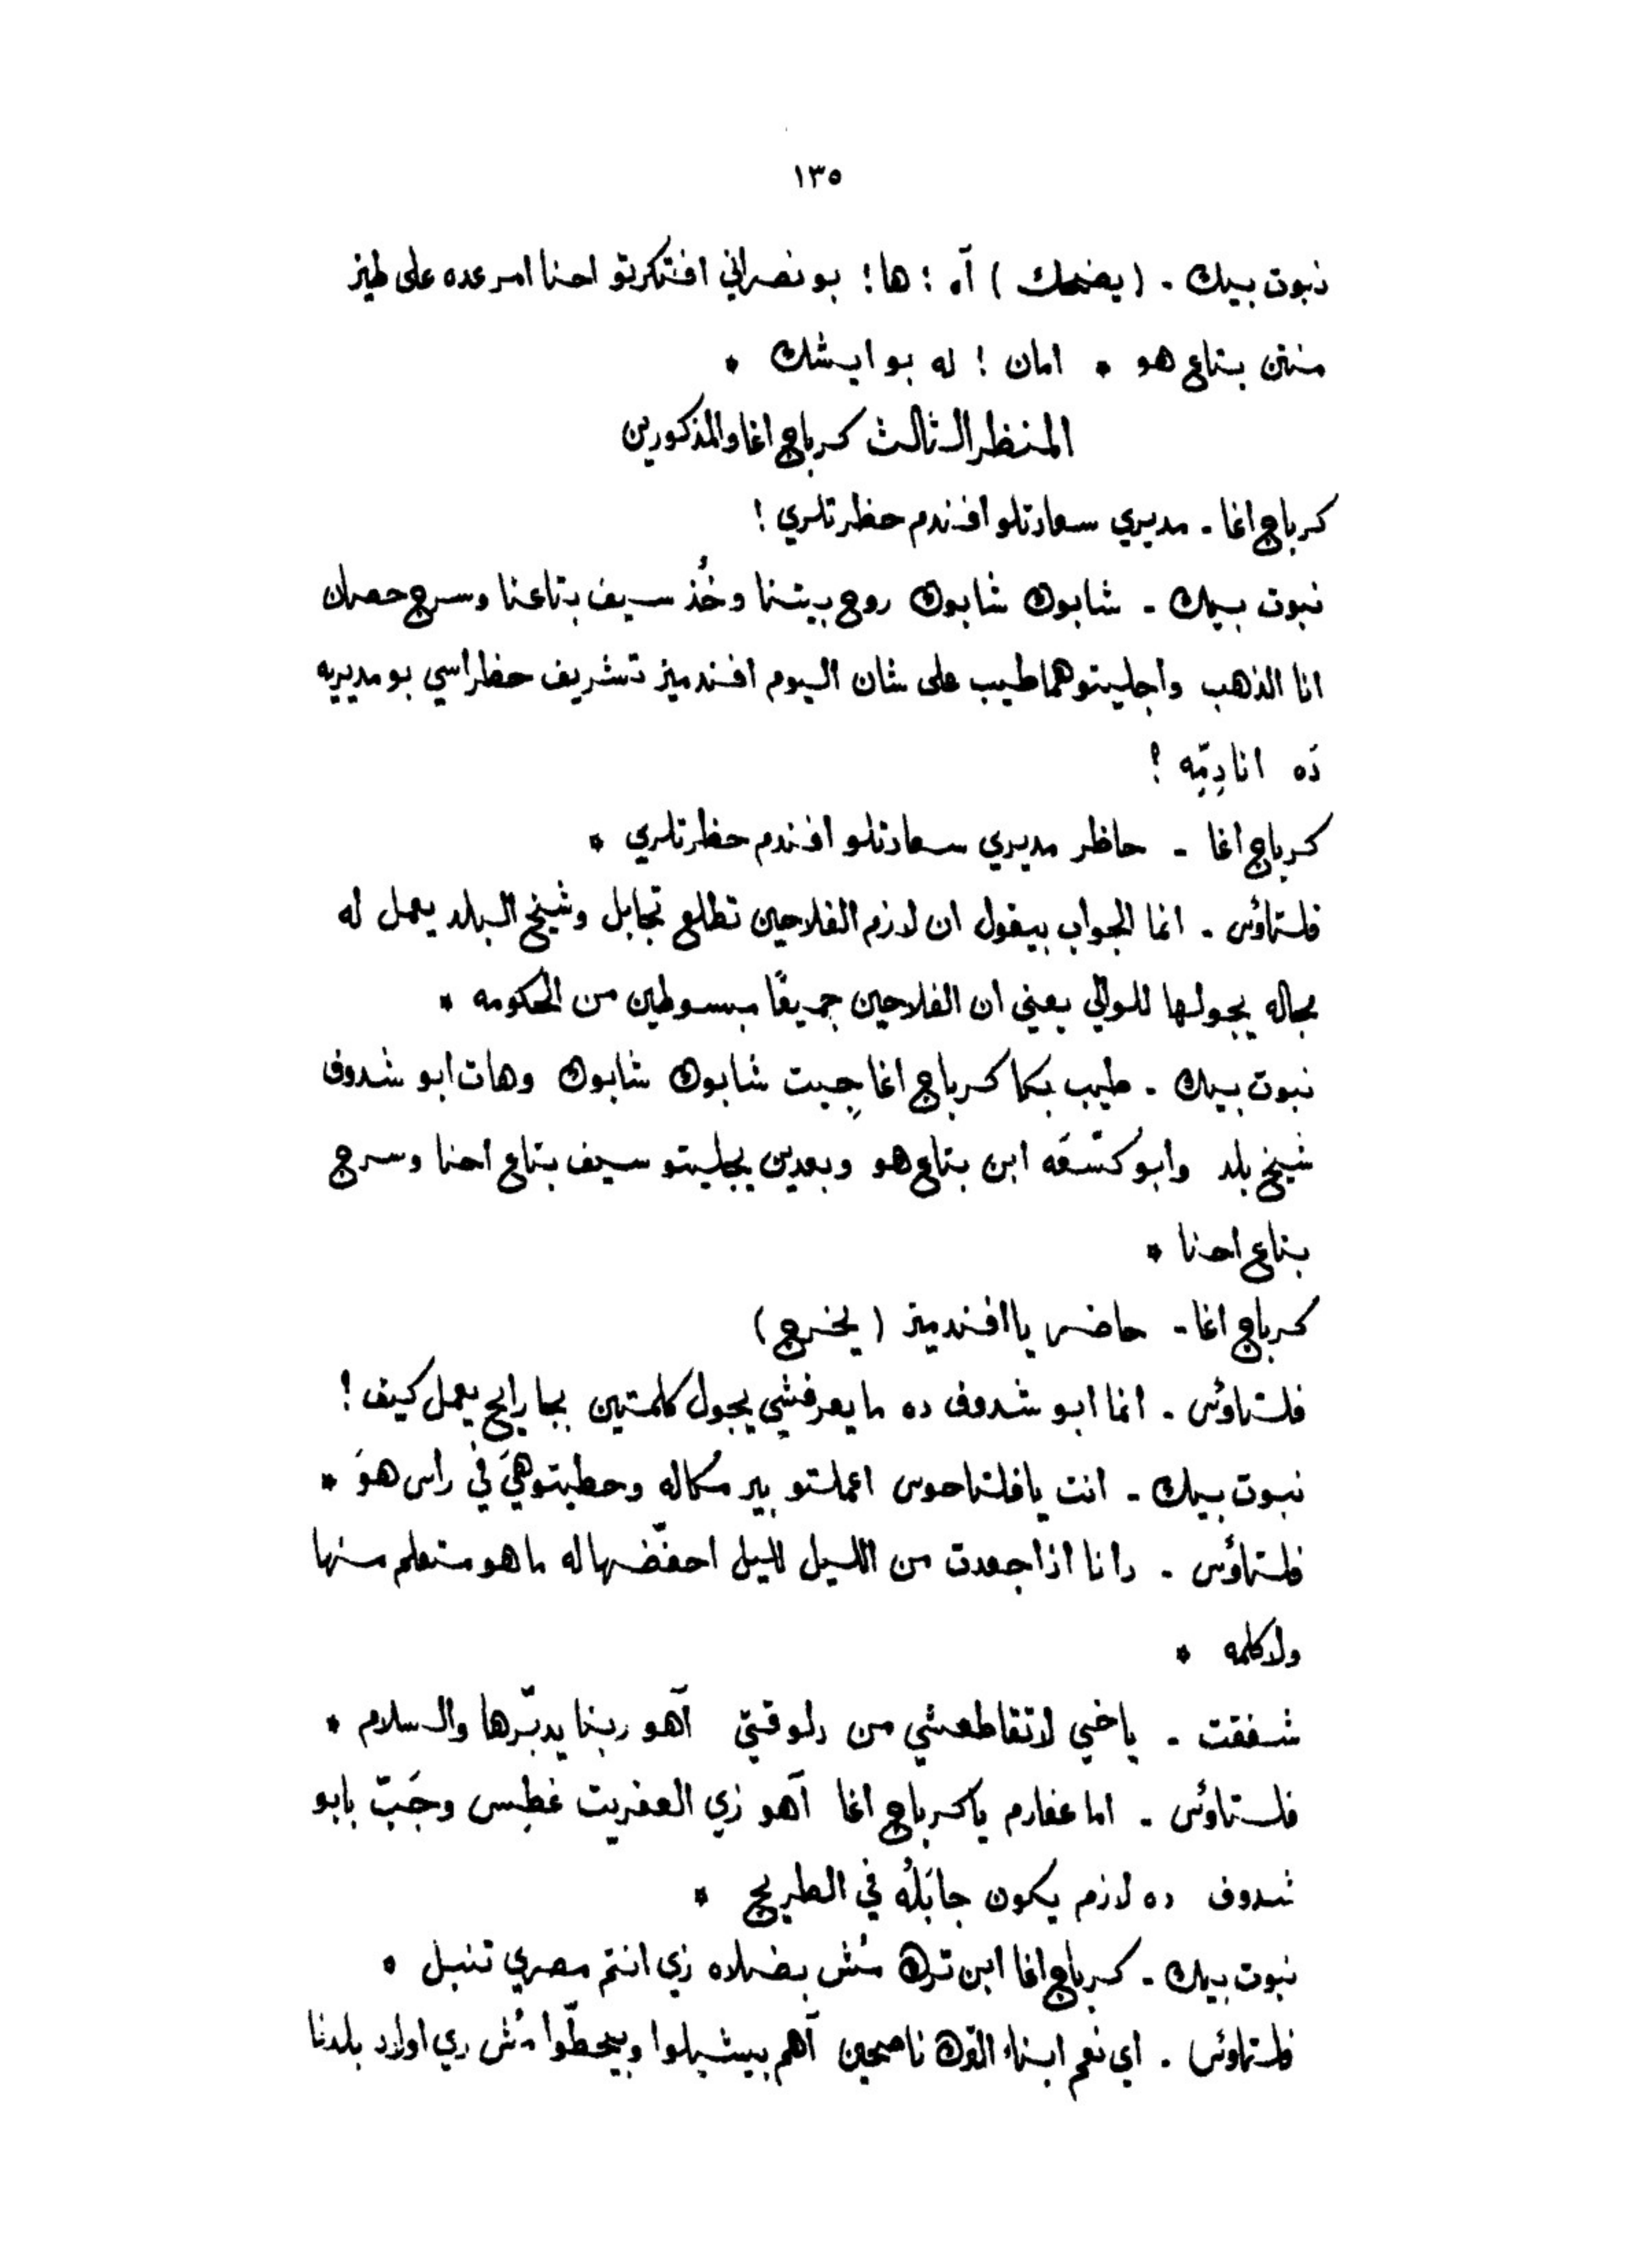 ١٣٥
نبوت بيك . ( يضحك ) آه ! ها ! بو نصراني افتكرتو احنا امر عده على طيز
منتن بتاع هو * امان ! له بو ايشك *
المنظر الثالث كرباج اغا والمذكورين
كرباج اغا ـ مديري سعادتلو افندم حظرتلري !
نبوت بيك ـ شابوك شابوك روح بيتنا وخُذ سيف بتاعنا وسرج حصان
انا الذهب واجليتو هما طيب على شان اليوم افندميز تشريف حظراسي بو مديريه
دَه انادِيّه ؟
كرباج اغا ـ حاظر مديري سعادتلو افندم حظرتلري *
فلتاؤس . انما الجواب بيقول ان لازم الفلاحين تطلع تجابل وشيخ البلد يعمل له
بجاله يجولها للوالي يعني ان الفلاحين جميعًا مبسوطين من الحكومه *
نبوت بيك . طيب بكا كرباج اغا جِبت شابوك شابوك وهات ابو شدوف
شيخ بلد وابو كسَعَه ابن بتاع هو وبعدين يجليتو سيف بتاع احنا وسرج
بتاع احنا *
كرباج اغا ـ حاضر يا افندميز ( يخرج )
فلتاؤس . انما ابو شدوف ده ما يعرفشي يجول كلمتين بجا رايح يعمل كيف !
نبوت بيك ـ انت يا فلتاحوس اعملتو بير مُكاله وحطيتو هيَ في راس هوَ *
فلتاؤس . دانا اذا جعدت من الليل لليل احفّضها له ما هو متعلم منها
ولا كلمه *
شفقت . يا خي لا تقاطعشي من دلوقتي آهو ربنا يدبّرها والسلام *
فلتاؤس . اما عفارم يا كرباج اغا آهو زي العفريت غطِس وجَبّ بابو
شدوف ده لازم يكون جابَلُه في الطريج *
نبوت بيك . كرباج اغا ابن ترك مُش بضلاه زي انتم مصري تنبل *
فلتاؤس . اي نعم ابناء الترك ناصحين آهم بيشيلوا وبيحطّوا مُش زي اولاد بلدنا